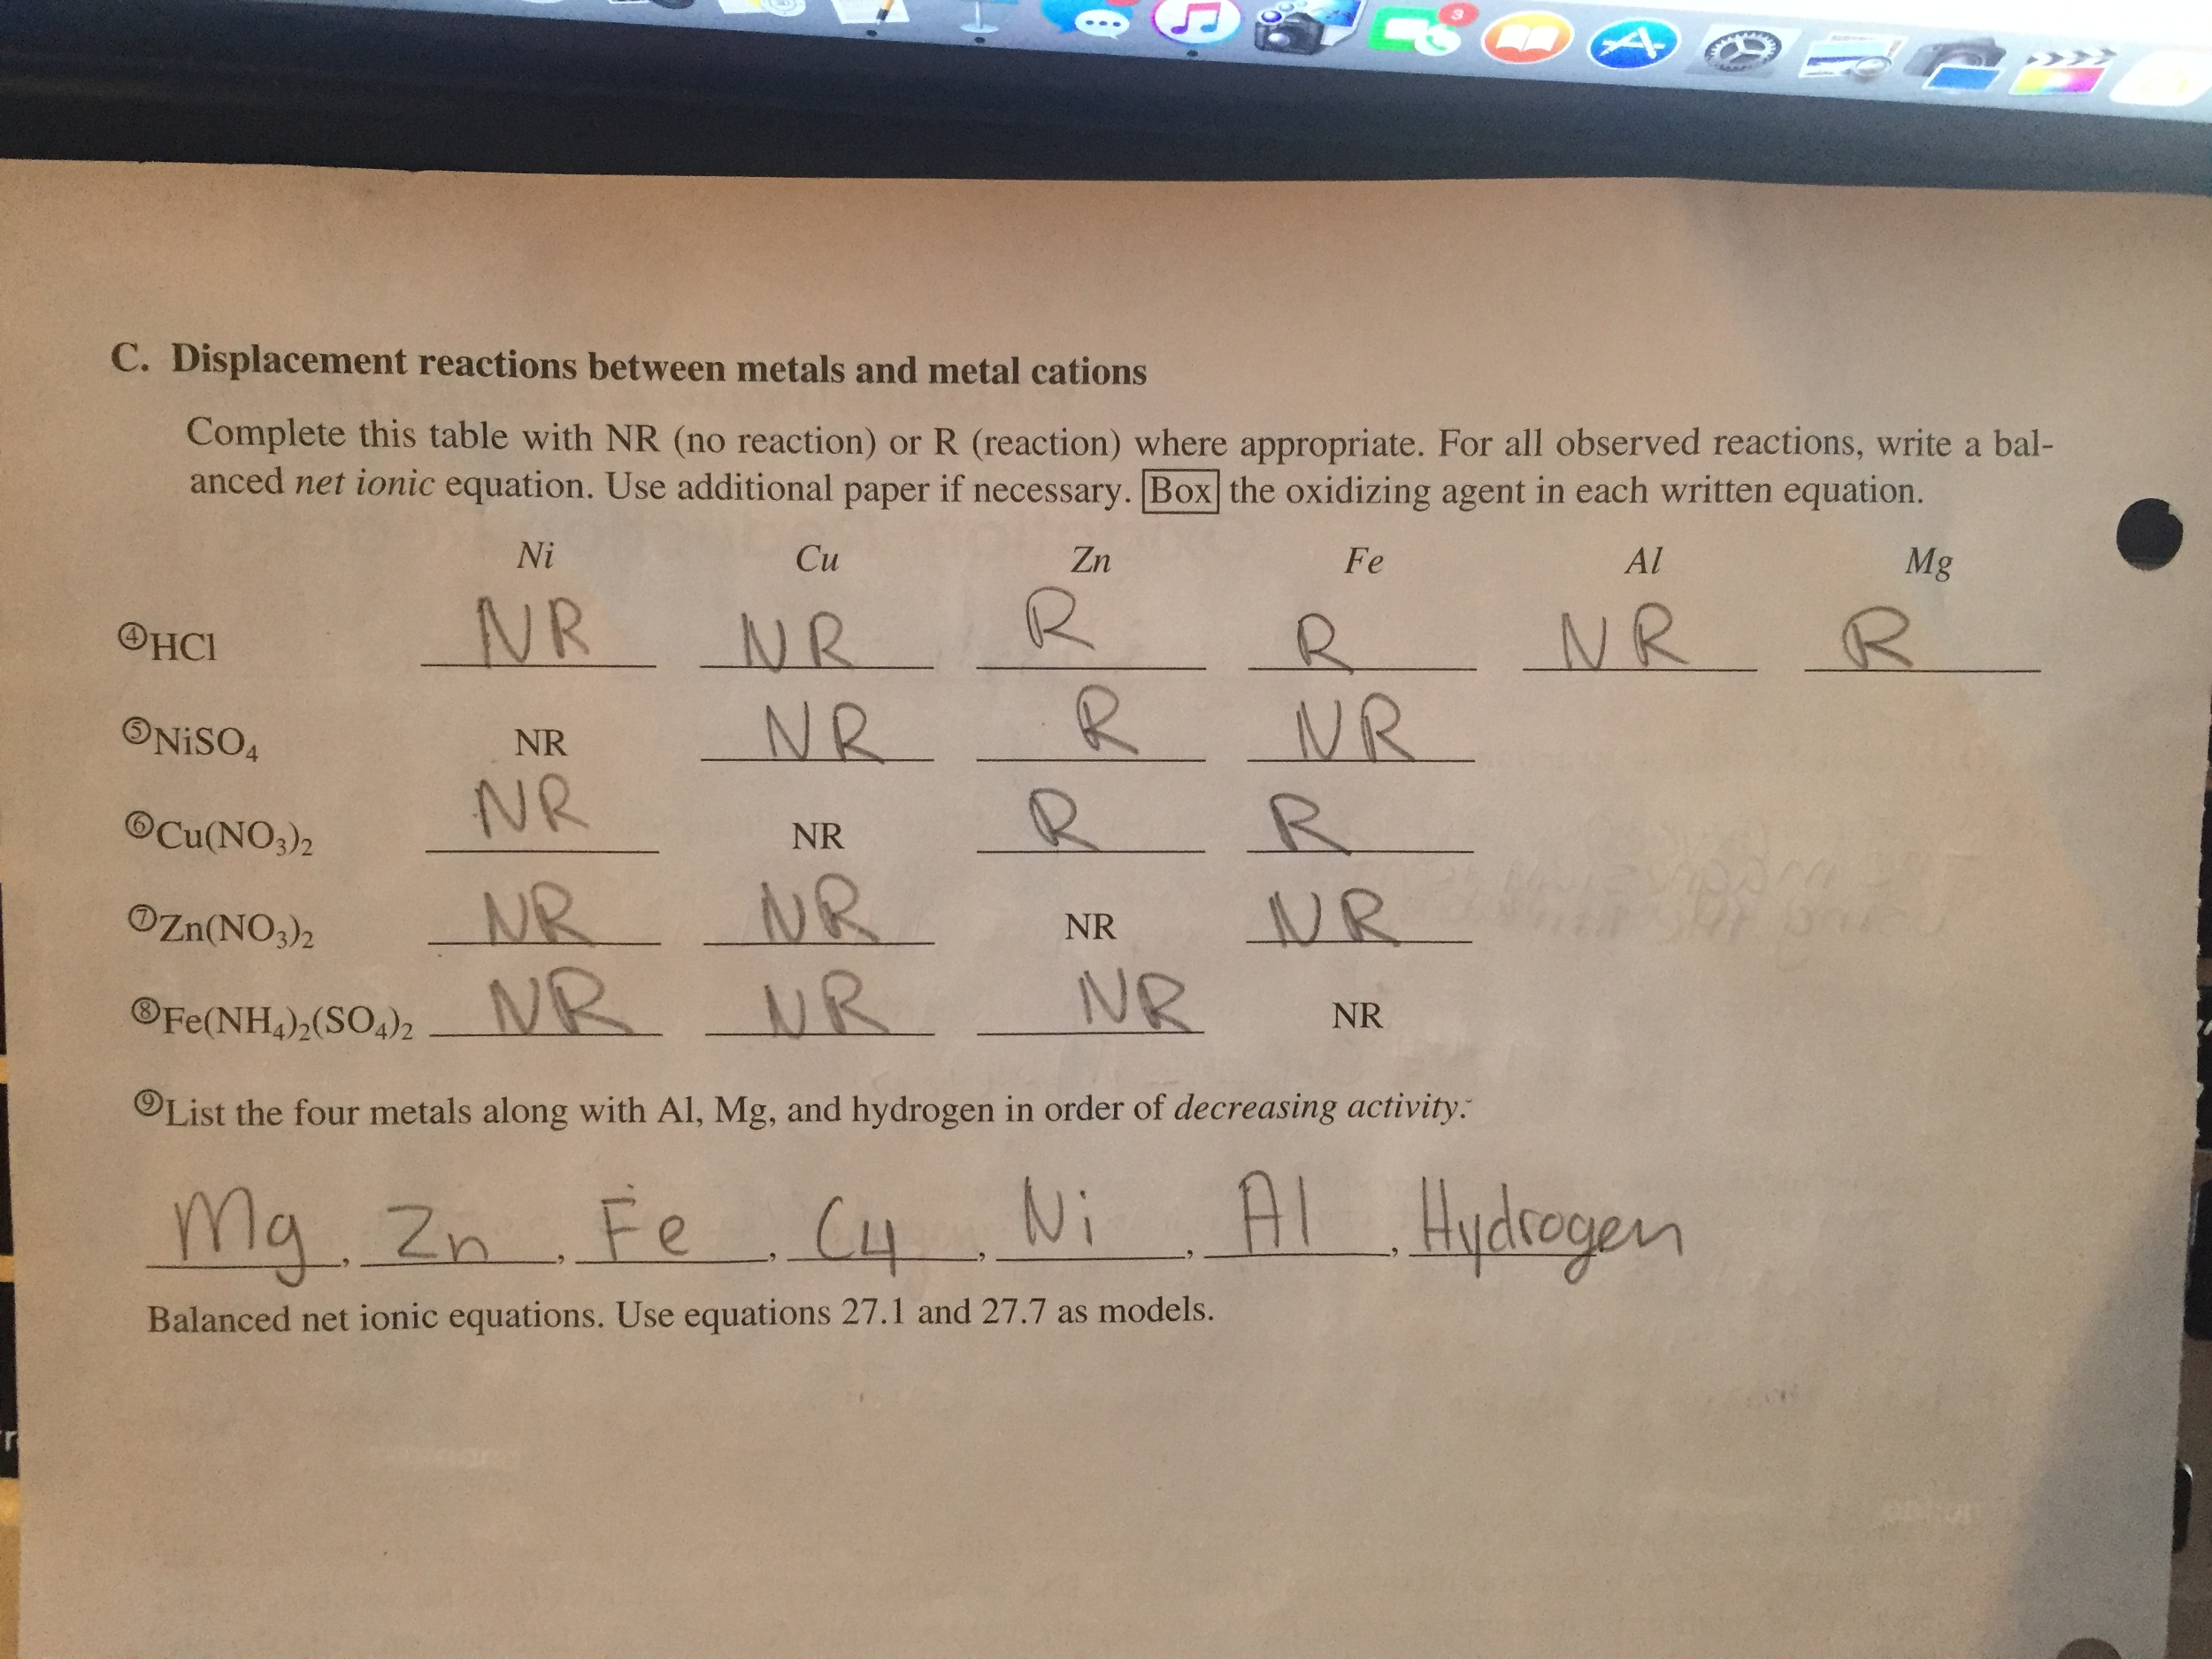 3
C. Displacement reactions between metals and metal cations
Complete this table with NR (no reaction) or R (reaction) where appropriate. For all observed reactions, write a bal-
anced net ionic equation. Use additional paper if necessary. Box the oxidizing agent in each written equation.
Ni Cu Zn Fe Al Mg
④HCl NR NR R R NR R
⑤NiSO₄ NR NR R NR
⑥Cu(NO₃)₂ NR NR R R
⑦Zn(NO₃)₂ NR NR NR NR
⑧Fe(NH₄)₂(SO₄)₂ NR NR NR NR
⑨List the four metals along with Al, Mg, and hydrogen in order of decreasing activity:
Mg, Zn, Fe, Cu, Ni, Al, Hydrogen
Balanced net ionic equations. Use equations 27.1 and 27.7 as models.